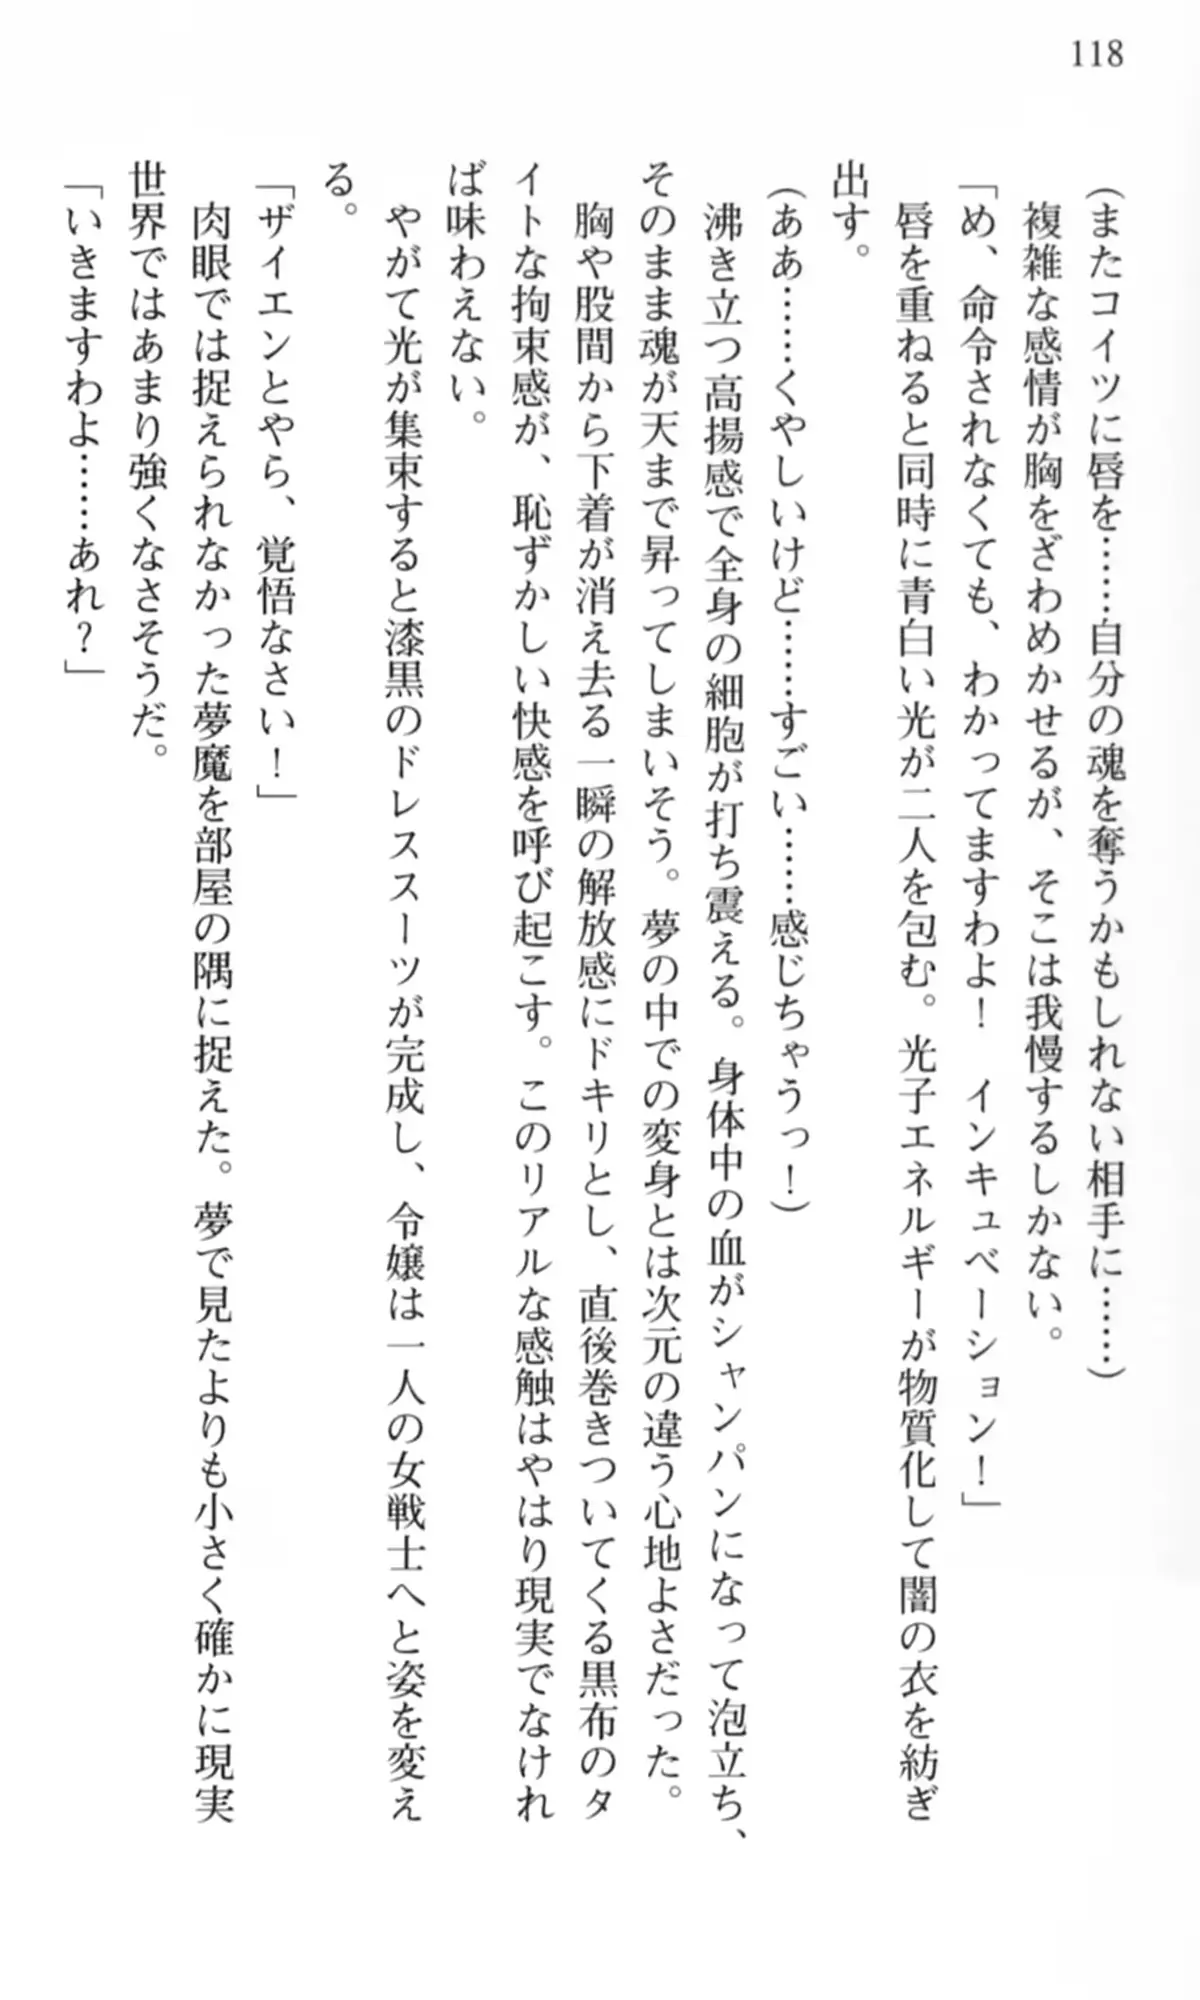 118
（またコイツに唇を……自分の魂を奪うかもしれない相手に……）
複雑な感情が胸をざわめかせるが、そこは我慢するしかない。
「め、命令されなくても、わかってますわよ！　インキュベーション！」
唇を重ねると同時に青白い光が二人を包む。光子エネルギーが物質化して闇の衣を紡ぎ
出す。
（ああ……くやしいけど……すごい……感じちゃうっ！）
沸き立つ高揚感で全身の細胞が打ち震える。身体中の血がシャンパンになって泡立ち、
そのまま魂が天まで昇ってしまいそう。夢の中での変身とは次元の違う心地よさだった。
胸や股間から下着が消え去る一瞬の解放感にドキリとし、直後巻きついてくる黒布のタ
イトな拘束感が、恥ずかしい快感を呼び起こす。このリアルな感触はやはり現実でなけれ
ば味わえない。
やがて光が集束すると漆黒のドレススーツが完成し、令嬢は一人の女戦士へと姿を変え
る。
「ザイエンとやら、覚悟なさい！」
肉眼では捉えられなかった夢魔を部屋の隅に捉えた。夢で見たよりも小さく確かに現実
世界ではあまり強くなさそうだ。
「いきますわよ……あれ？」